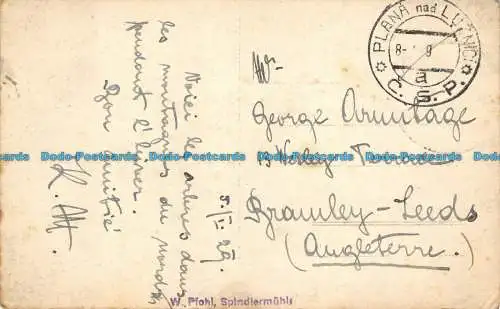 Voici les arbres dans
les montagnes du nord
pendant l'hiver.
Bon amitié
K. M.
5/I. 29.
PLANÁ nad LUŽNICÍ
8-
a
Č. S. P.
Mr
George Armitage
Terrace
Bramley-Leeds
(Angleterre.)
W. Pfohl, Spindlermühle
Dodo-Postcards Dodo-Postcards Dodo-Postcards Dodo-Postcards Dodo-Postcards